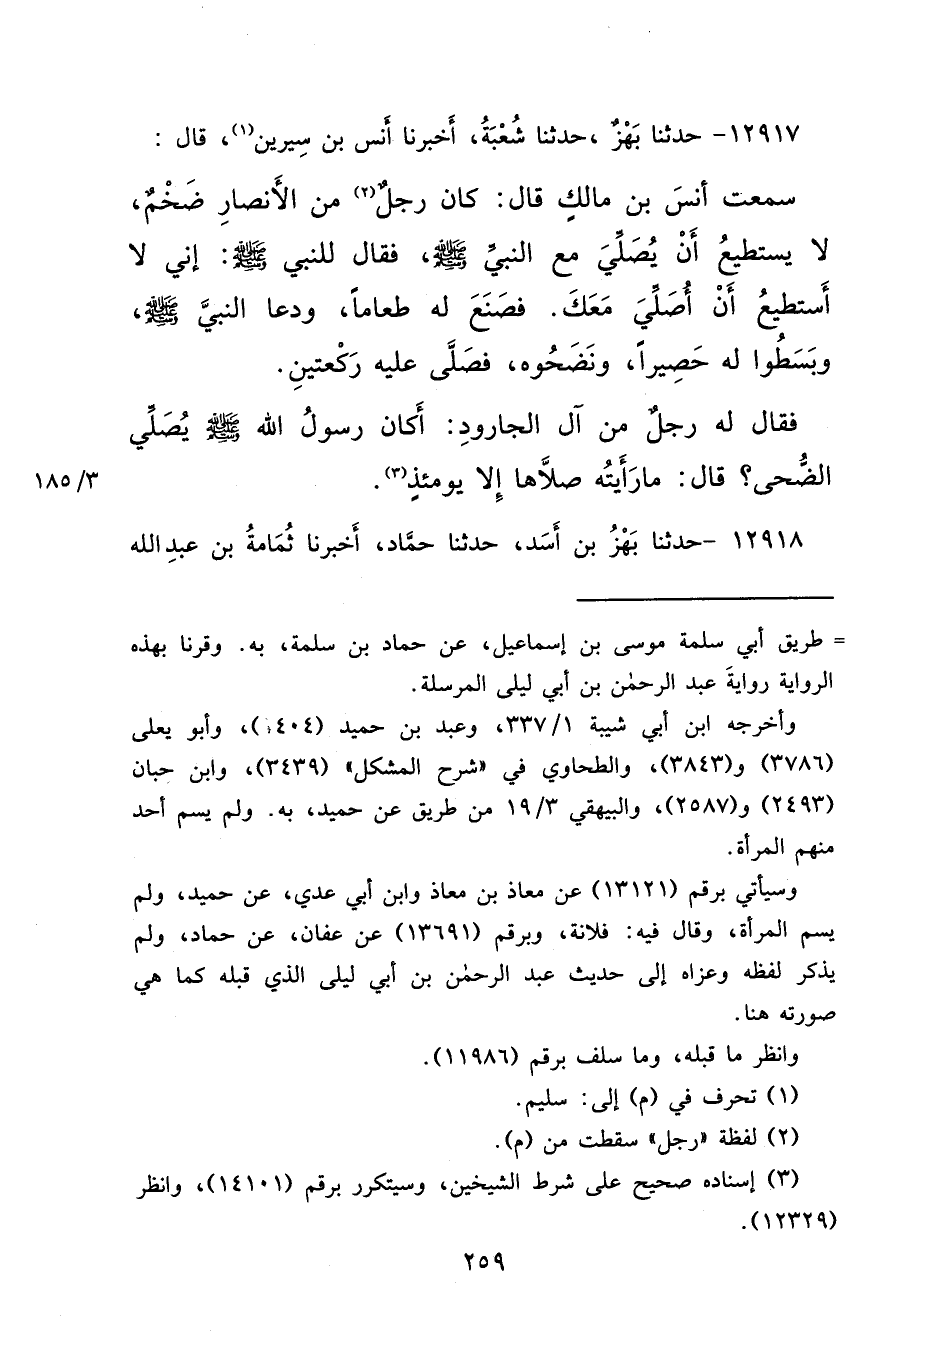 ١٢٩١٧- حدثنا بَهْزٌ ،حدثنا شُعْبَةُ، أَخبرنا أَنس بن سِيرين(١)، قال :
سمعت أنسَ بن مالكٍ قال: كان رجلٌ(٢) من الأَنصارِ ضَخْمٌ،
لا يستطيعُ أَنْ يُصَلِّيَ مع النبيِّ ﷺ، فقال للنبي ﷺ: إني لا
أَستطيعُ أَنْ أُصَلِّيَ مَعَكَ. فصَنَعَ له طعاماً، ودعا النبيَّ ﷺ،
وبَسَطُوا له حَصِيراً، ونَضَحُوه، فصَلَّى عليه رَكْعتينِ.
فقال له رجلٌ من آل الجارودِ: أَكان رسولُ الله ﷺ يُصَلِّي
الضُّحى؟ قال: مارَأَيتُه صلاَّها إِلا يومئذٍ(٣).
١٨٥/٣
١٢٩١٨ -حدثنا بَهْزُ بن أَسَد، حدثنا حمَّاد، أَخبرنا ثُمَامةُ بن عبدِالله
= طريق أبي سلمة موسى بن إسماعيل، عن حماد بن سلمة، به. وقرنا بهذه
الرواية روايةَ عبد الرحمٰن بن أبي ليلى المرسلة.
وأخرجه ابن أبي شيبة ٣٣٧/١، وعبد بن حميد، وأبو يعلى
(٣٧٨٦) و(٣٨٤٣)، والطحاوي في «شرح المشكل» (٣٤٣٩)، وابن حبان
(٢٤٩٣) و(٢٥٨٧)، والبيهقي ١٩/٣ من طريق عن حميد، به. ولم يسم أحد
منهم المرأة.
وسيأتي برقم (١٣١٢١) عن معاذ بن معاذ وابن أبي عدي، عن حميد، ولم
يسم المرأة، وقال فيه: فلانة، وبرقم (١٣٦٩١) عن عفان، عن حماد، ولم
يذكر لفظه وعزاه إلى حديث عبد الرحمٰن بن أبي ليلى الذي قبله كما هي
صورته هنا.
وانظر ما قبله، وما سلف برقم (١١٩٨٦).
(١) تحرف في (م) إلى: سليم.
(٢) لفظة «رجل» سقطت من (م).
(٣) إسناده صحيح على شرط الشيخين، وسيتكرر برقم (١٤١٠١)، وانظر
(١٢٣٢٩).
٢٥٩